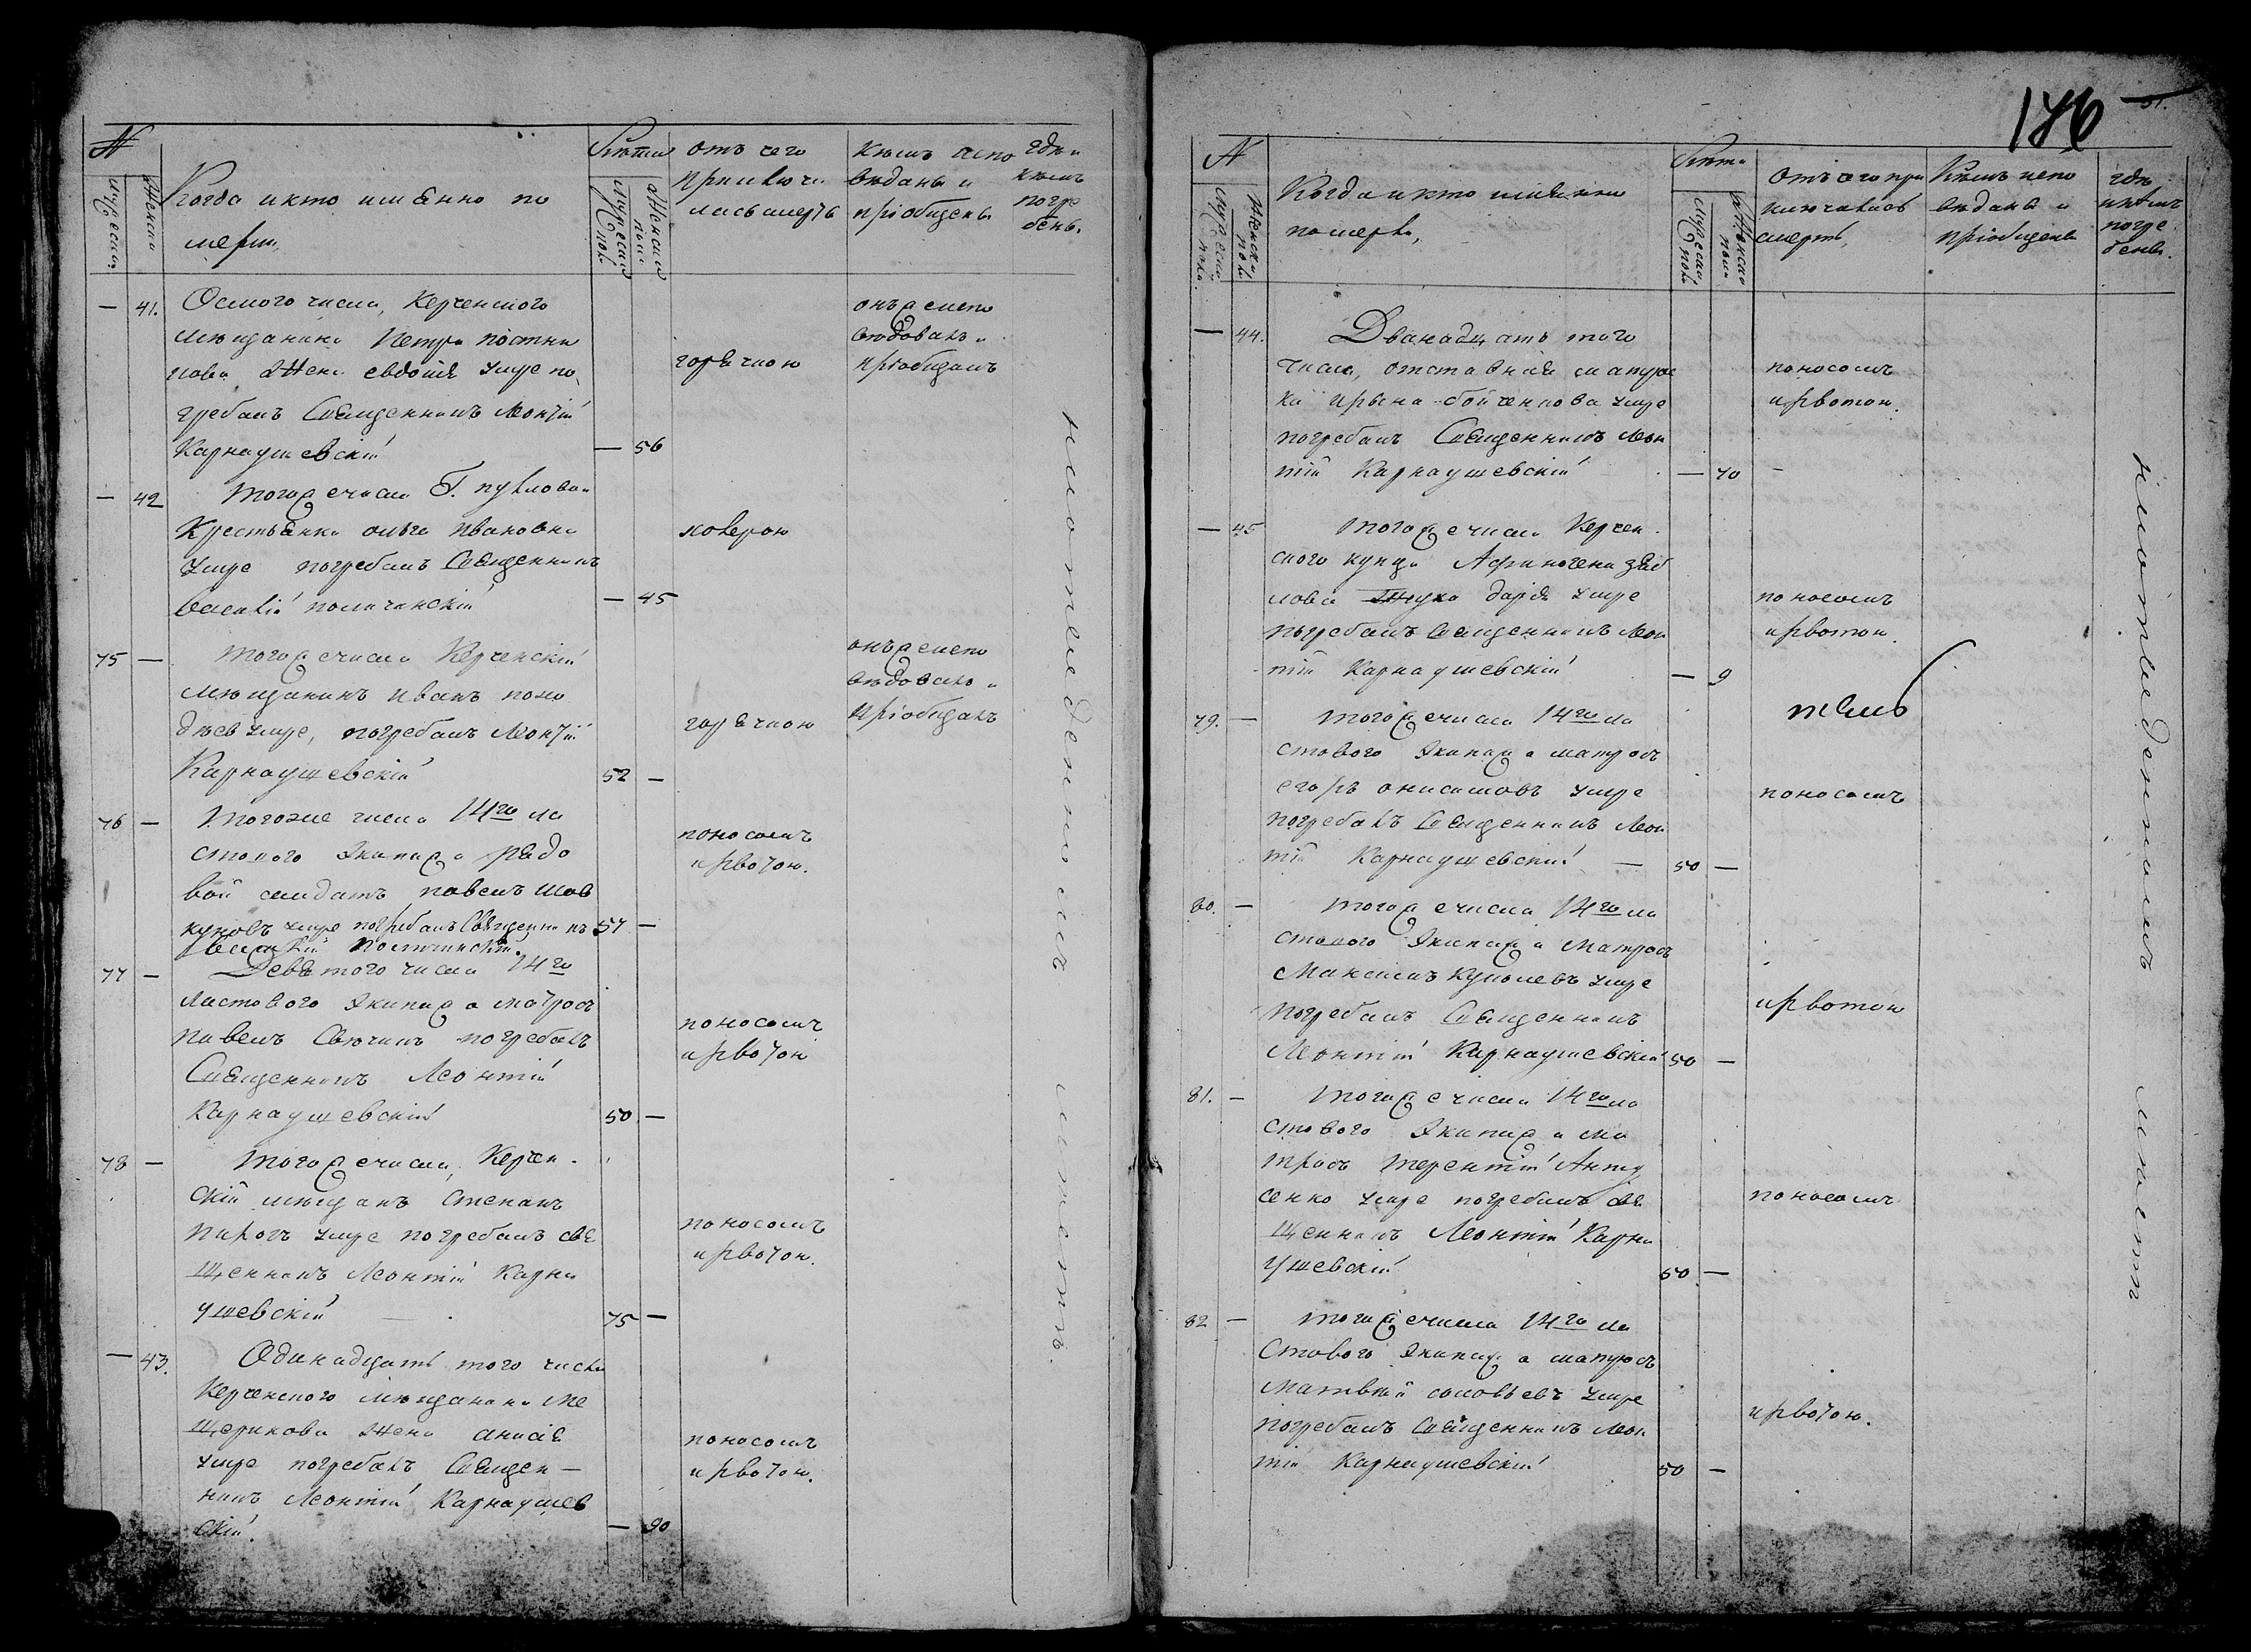 N
Мужеска
Женска
Когда и кто имянно по
мерли,
Лѣта
Мужеска пола
Женска пола
отъ чего
приключи
лась смерть
Кѣмъ испо
вѣданы и
пріобщены
гдѣ и
кѣмъ
погре
бены.
— 41. Осмого числа, Керченского
мѣщанина Петра
жена евдокія умре по
гребалъ Священникъ Леонтій
Карнаушевскій — 56
горячкою
онъ же испо
вѣдовалъ и
пріобщалъ
— 42 Того же числа Г.
Крестьянка ольга Ивановна
умре погребалъ Священникъ
Василій — 45
холерою
75 — Того же числа Керченскій
мѣщанинъ иванъ
умре, погребалъ Леонтій
Карнаушевскій 52 —
горячкою
онъ же испо
вѣдовалъ и
пріобщалъ
76 — Того же числа 14го ла
стового Экипажа рядо
вой солдатъ павелъ
умре погребалъ Священникъ 57 —
Василій
поносомъ
и рвотою.
77 — Девятого числа 14го
ластового Экипажа матросъ
павелъ погребалъ
Священникъ Леонтій
Карнаушевскій 50 —
поносомъ
и рвотою
78 — Того же числа, Керчен-
скій мѣщанъ Степанъ
Пирогъ умре погребалъ свя
щенникъ Леонтій Карна
ушевскій 75 —
поносомъ
и рвотою.
— 43. Одинадцатого числа
Керченского мѣщанина Ме
щерикова жена анисія
умре погребалъ Священ—
никъ Леонтій Карнаушев
скій. — 90
поносомъ
и рвотою.
иметь.
186
51.
N
Мужеска пола
Женска пола
Когда и кто имянно
померли,
Лѣта
Мужеска пола
Женска пола
Отъ чего при
ключилась
смерть,
Кѣмъ испо
вѣданы и
пріобщены
гдѣ
и кѣмъ
погре
бены.
— 44. Дванадцатого
числа, отставная матрос
ка Ирына бойченкова умре
погребалъ Священникъ Леон
тій Карнаушевскій — 70 —
поносомъ
и рвотою.
— 45 Того же числа Керчен-
ского купца Афиногена
дарія умре
погребалъ Священникъ Леон
тій Карнаушевскій — 9
поносомъ
и рвотою.
79. — Того же числа 14го ла
стового Экипажа матросъ
егоръ онисимовъ умре
погребалъ Священникъ Леон
тій Карнаушевскій — 50 —
поносомъ
80. — Того же числа 14го ла
стового Экипажа Матросъ
Максимъ умре
погребалъ Священникъ
Леонтій Карнаушевскій 50 —
и рвотою
81. — Того же числа 14го ла
стового Экипажа ма
тросъ терентій
сенко умре погребалъ свя
щенникъ Леонтій Карна
ушевскій 50 —
поносомъ
82 — Того же числа 14го ла
стового Экипажа матросъ
матвѣй соловьевъ умре
погребалъ Священникъ Леон
тій Карнаушевскій 50 —
и рвотою.